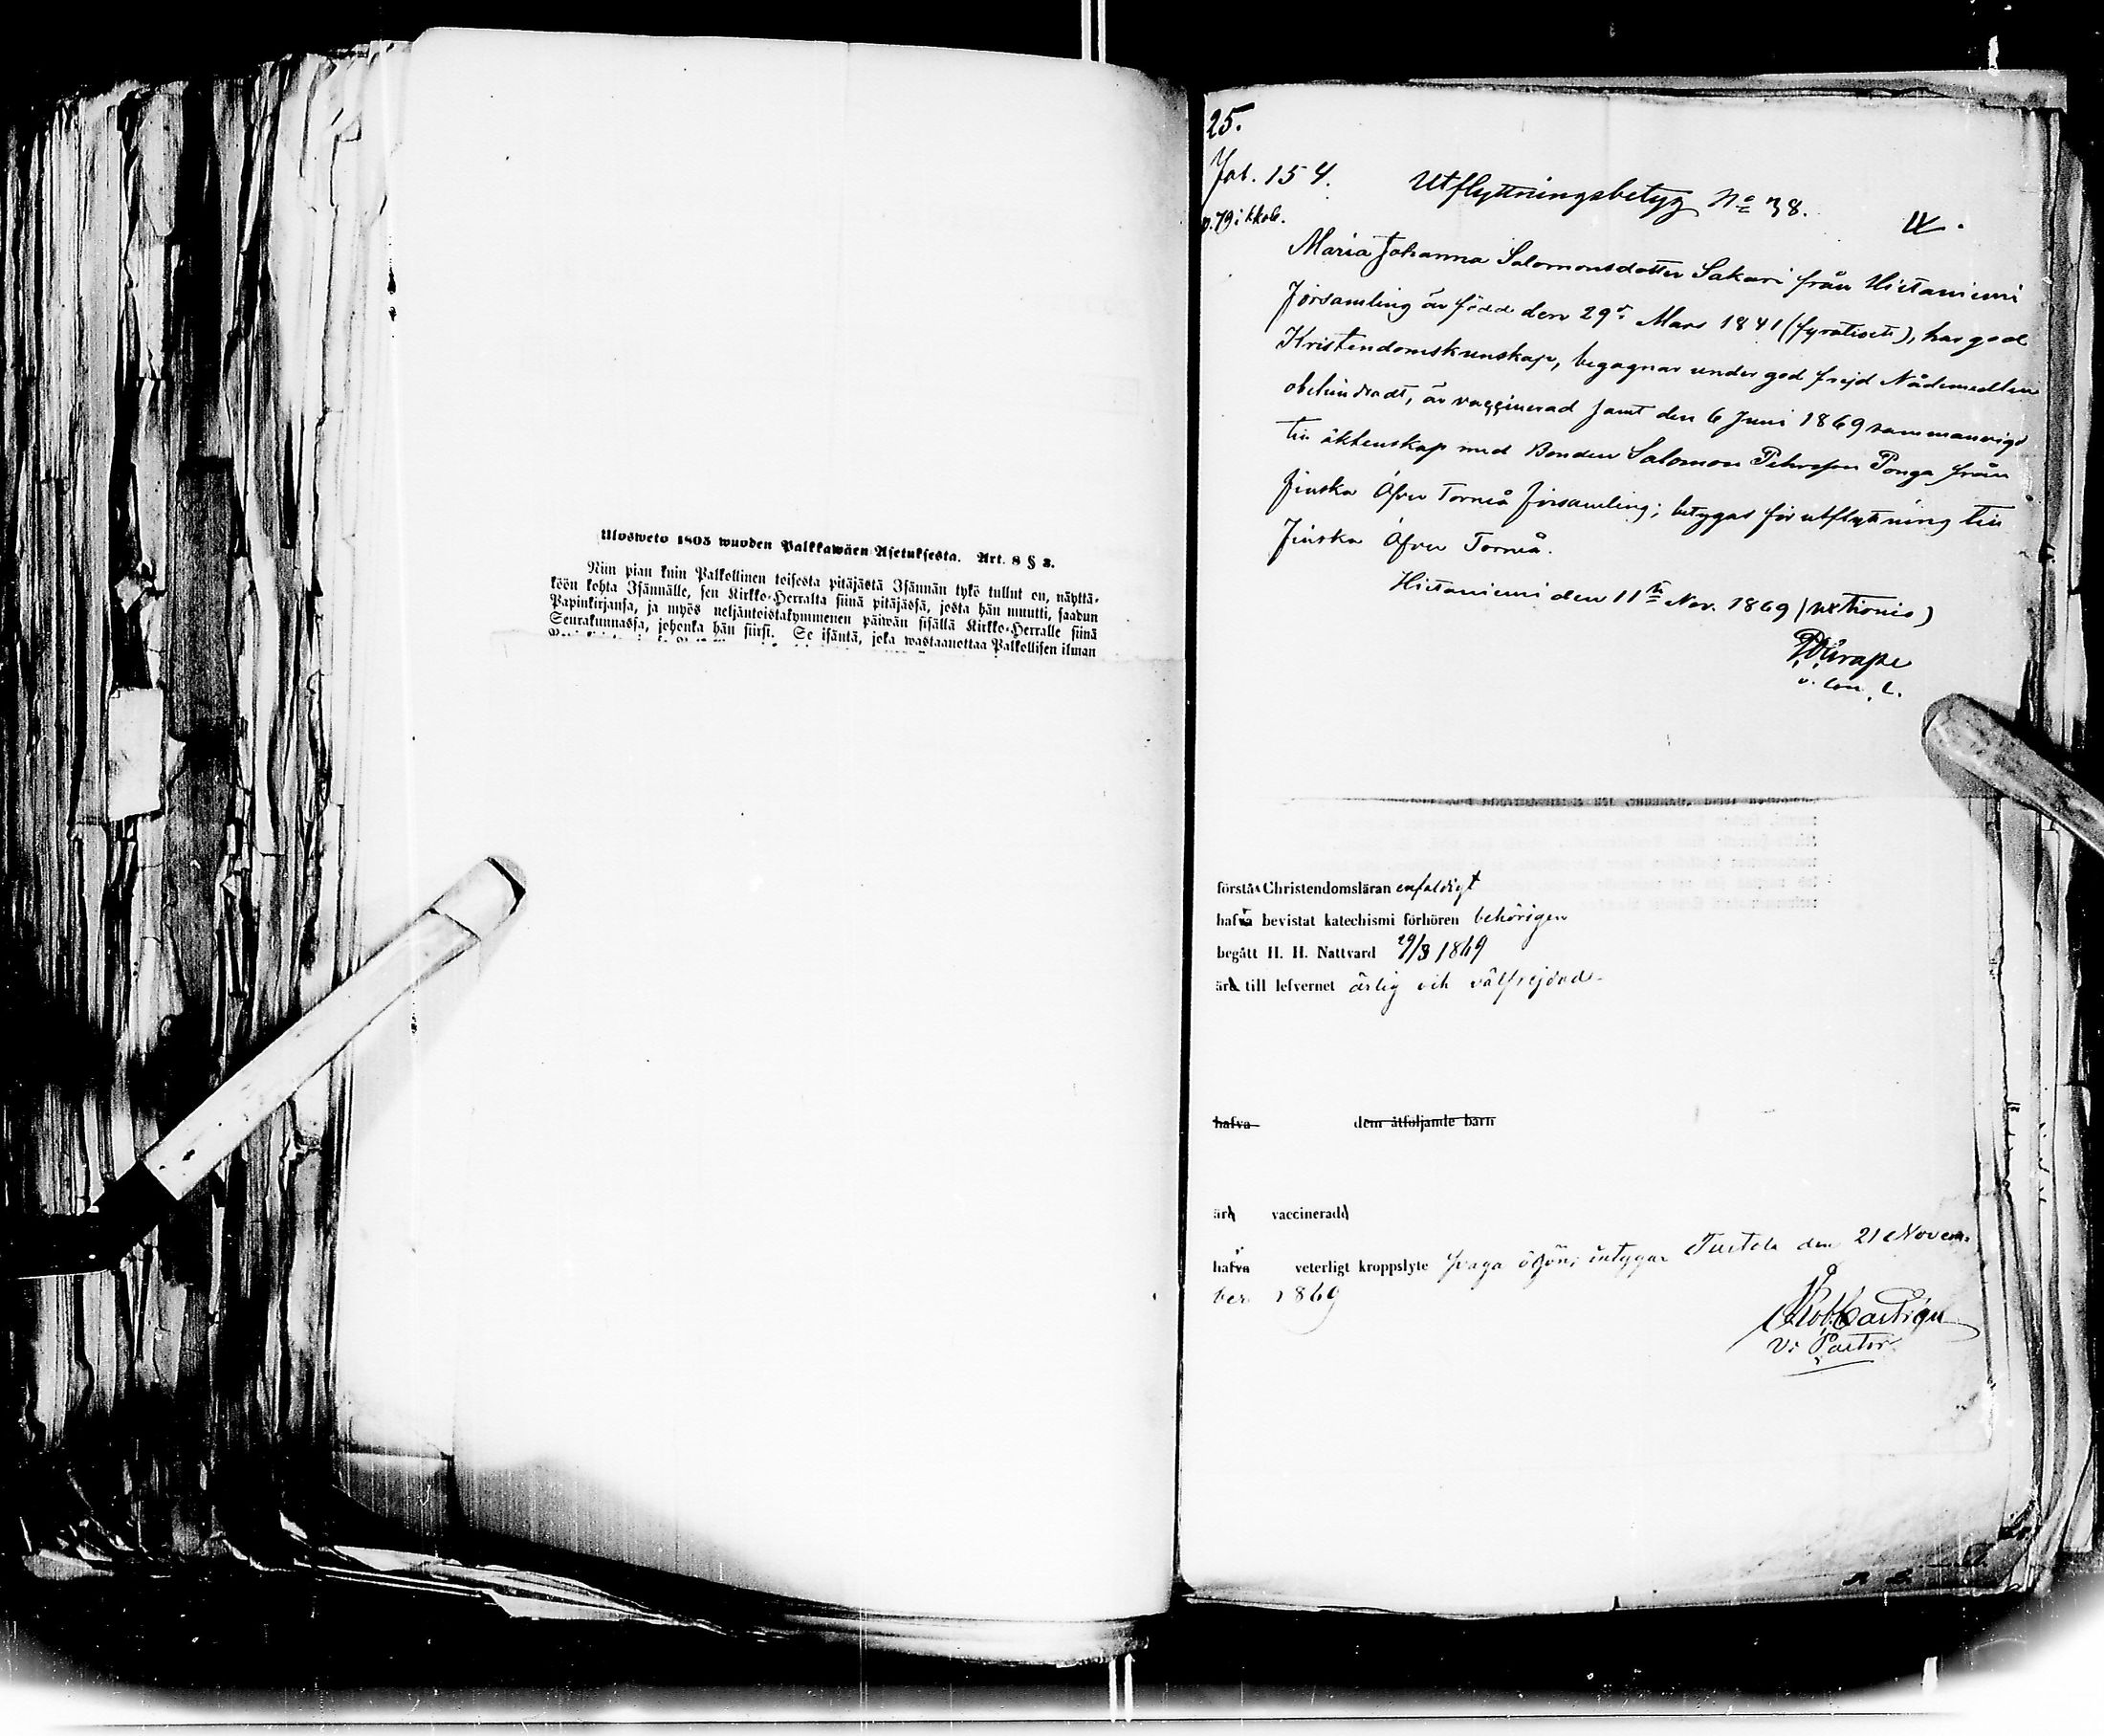 Ulosweto 1805 wuoden Palkkawäen Asetuksesta. Art. 8 § 3.
Niin pian kuin Palkollinen toisesta pitäjästä Isännän tykö tullut on, näyttä-
köön kohta Isännälle, sen Kirkko-Herralta siinä pitäjässä, josta hän muutti, saadun
Papinkirjansa, ja myös neljäntoistakymmenen päiwän sisällä Kirkko-Herralle siinä
Seurakunnassa, johonka hän siirsi. Se isäntä, joka wastaanottaa Palkollisen ilman
25.
Jot. 154.
p. 79 i kkob.
Utflyttningsbetyg No 38.
IV.
Maria Johanna Salomonsdotter Sakari från Hietaniemi
församling är född den 29de Mars 1841 (fyratiett), har god
Kristendomskunskap, begagnar under god frejd Nådemedlen
obehindradt, är vaccinerad samt den 6 Juni 1869 sammanvigd
till äktenskap med Bonden Salomon Pehrsson Ponga från
finska Öfver Torneå församling; betygas för utflyttning till
Finska Öfver Torneå.
Hietaniemi den 11te Nov. 1869
v. Com. l.
förstår Christendomsläran enfaldigt
hafva bevistat katechismi förhören behörigen
begått H. H. Nattvard 29/3 1869
ära till lefvernet ärlig och välfrejdad
hafva dem åtföljande barn
ära vaccineradd
hafva veterligt kroppslyte svaga ögon, intygar Turtola den 21 Novem-
ber 1869
Rob. Castrén
V. Pastor